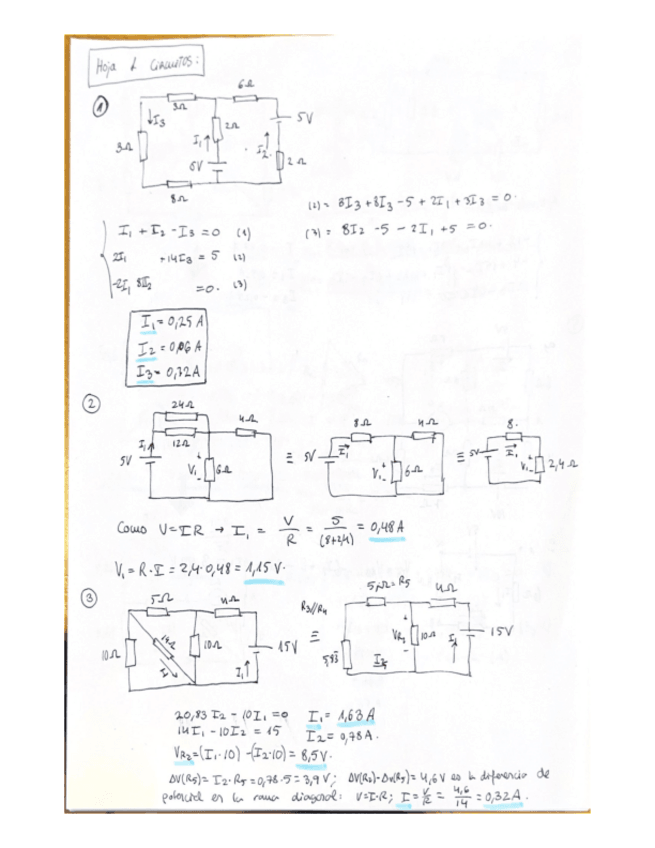 Hoja 1 CIRCUITOS:
①
3Ω 6Ω
I3 2Ω 5V
3Ω I1 I2
5V 2Ω
8Ω
(2) = 8I3 + 3I3 - 5 + 2I1 + 3I3 = 0.
I1 + I2 - I3 = 0 (1) (3) = 8I2 - 5 - 2I1 + 5 = 0.
2I1 + 14I3 = 5 (2)
-2I1 8I2 = 0. (3)
I1 = 0,25 A
I2 = 0,06 A
I3 = 0,32 A
②
24Ω
8Ω 4Ω 8.
I1 12Ω 4Ω
5V V1 + - 6Ω ≡ 5V I1 V1 + - 6Ω ≡ 5V I1 V1 + - 2,4Ω
Como V=IR → I1 = V/R = 5/(8+2,4) = 0,48A
V1 = R·I = 2,4·0,48 = 1,15 V.
③
5Ω 4Ω R3//R4 5Ω = R5 4Ω
10Ω 14Ω 10Ω 15V ≡ VR2 + - 10Ω I1 15V
I1 5,83
20,83 I2 - 10I1 = 0 I1 = 1,63 A
14I1 - 10I2 = 15 I2 = 0,78 A.
VR2 = (I1·10) - (I2·10) = 8,5 V.
ΔV(R5) = I2·R5 = 0,78·5 = 3,9 V; ΔV(R2) - ΔV(R5) = 4,6 V es la diferencia de
potencial en la rama diagonal: V=I·R; I = V/R = 4,6/14 = 0,32 A.